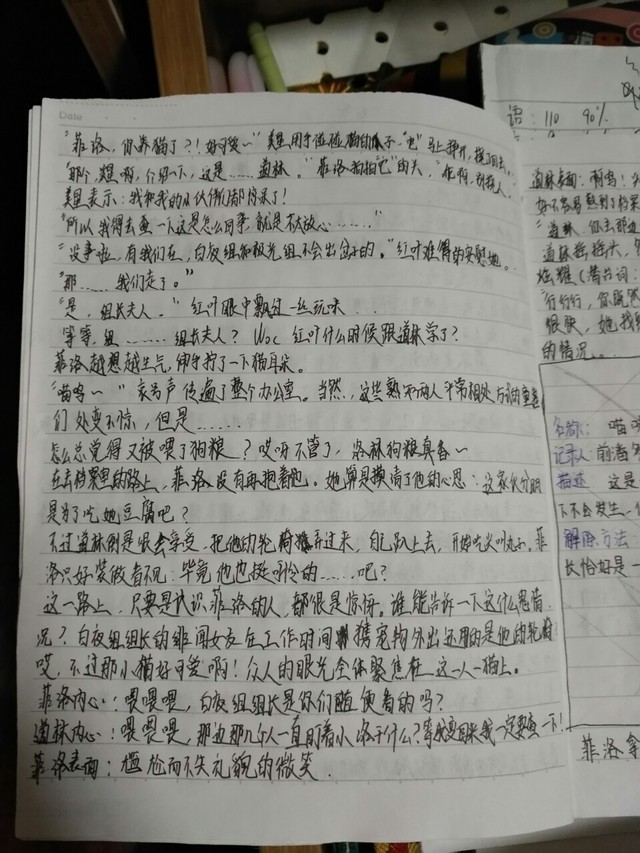 Date
"菲洛，你养猫了？！好可爱~"美里用手碰碰猫的爪子，"它"马上挣开，
"那个，美里啊，介绍一下，这是……道林。"菲洛拍拍"它"的头，
美里表示：我和我的小伙伴们都惊呆了！
"所以我得去查一下这是怎么回事，就是不太放心……"
"没事啦，有我们在，白夜组和极光组不会出岔子的。"红叶难得的安慰她。
"那……我们走了。"
"是，组长夫人。"红叶眼中飘过一丝玩味...
等等，组……组长夫人？Woc 红叶什么时候跟道林学了？
菲洛越想越生气，伸手拧了一下猫耳朵。
"喵呜~"哀号声传遍了整个办公室。当然，这些熟
们处变不惊，但是……
怎么总觉得又被喂了狗粮？哎呀不管了，洛林狗粮真香~
在去档案里的路上，菲洛没有再抱着他。她算是摸清了他的心思：这家伙分明
是为了吃她豆腐吧？
不过道林倒是很会享受，把他的轮椅弄过来，自己趴上去，开始
洛只好装做看不见：毕竟他也挺可怜的……吧？
这一路上，只要是认识菲洛的人，都很是惊讶。谁能告诉一下这什么情
况？白夜组组长的绯闻女友在工作时间携宠物外出还用的是他的轮椅
哎，不过那小猫好可爱啊！众人的眼光全体聚焦在这一人一猫上。
菲洛内心：喂喂喂，白夜组组长是你们随便看的吗？
道林内心：喂喂喂，那边那几个人一直盯着小洛干什么？等我变回来我一定要 一下！
菲洛表面：尴尬而不失礼貌的微笑.
语：110 90%
道林表面：啊呜！
好不容易熬到了档案
"道林，你去那边
道林摇摇头，
"行行行，你既然
很快，她找
的情况..
名称：喵
记录人：前
描述 这是
下不会发生一
解除方法
长恰好是一
菲洛拿